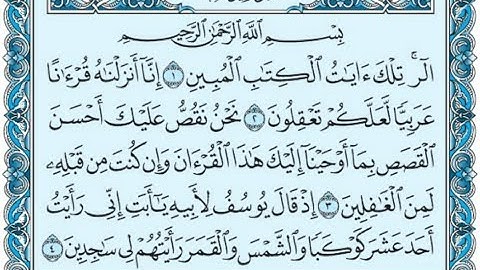 بِسْمِ ٱللَّهِ ٱلرَّحْمَٰنِ ٱلرَّحِيمِ
الٓر ۚ تِلْكَ ءَايَٰتُ ٱلْكِتَٰبِ ٱلْمُبِينِ ١ إِنَّآ أَنزَلْنَٰهُ قُرْءَٰنًا
عَرَبِيًّا لَّعَلَّكُمْ تَعْقِلُونَ ٢ نَحْنُ نَقُصُّ عَلَيْكَ أَحْسَنَ
ٱلْقَصَصِ بِمَآ أَوْحَيْنَآ إِلَيْكَ هَٰذَا ٱلْقُرْءَانَ وَإِن كُنتَ مِن قَبْلِهِۦ
لَمِنَ ٱلْغَٰفِلِينَ ٣ إِذْ قَالَ يُوسُفُ لِأَبِيهِ يَٰٓأَبَتِ إِنِّى رَأَيْتُ
أَحَدَ عَشَرَ كَوْكَبًا وَٱلشَّمْسَ وَٱلْقَمَرَ رَأَيْتُهُمْ لِى سَٰجِدِينَ ٤